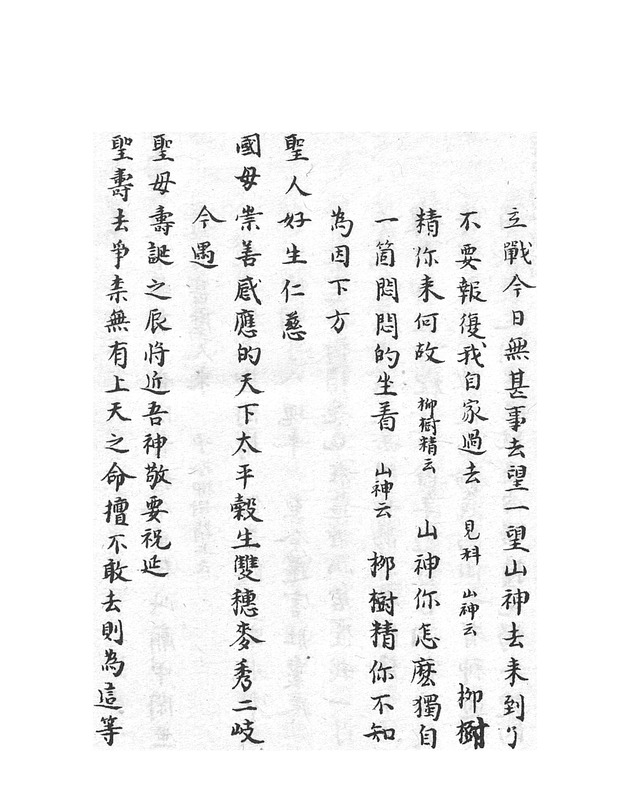 立戰今日無甚事去望一望山神去来到了
不要報復我自家過去 見科 山神云 柳樹
精你来何故 柳樹精云 山神你怎麽獨自
一箇悶悶的坐着 山神云 柳樹精你不知
為因下方
聖人好生仁慈
國母崇善感應的天下太平穀生雙穗麥秀二岐
今遇
聖母壽誕之辰將近吾神敬要祝延
聖壽去爭柰無有上天之命擅不敢去則為這等